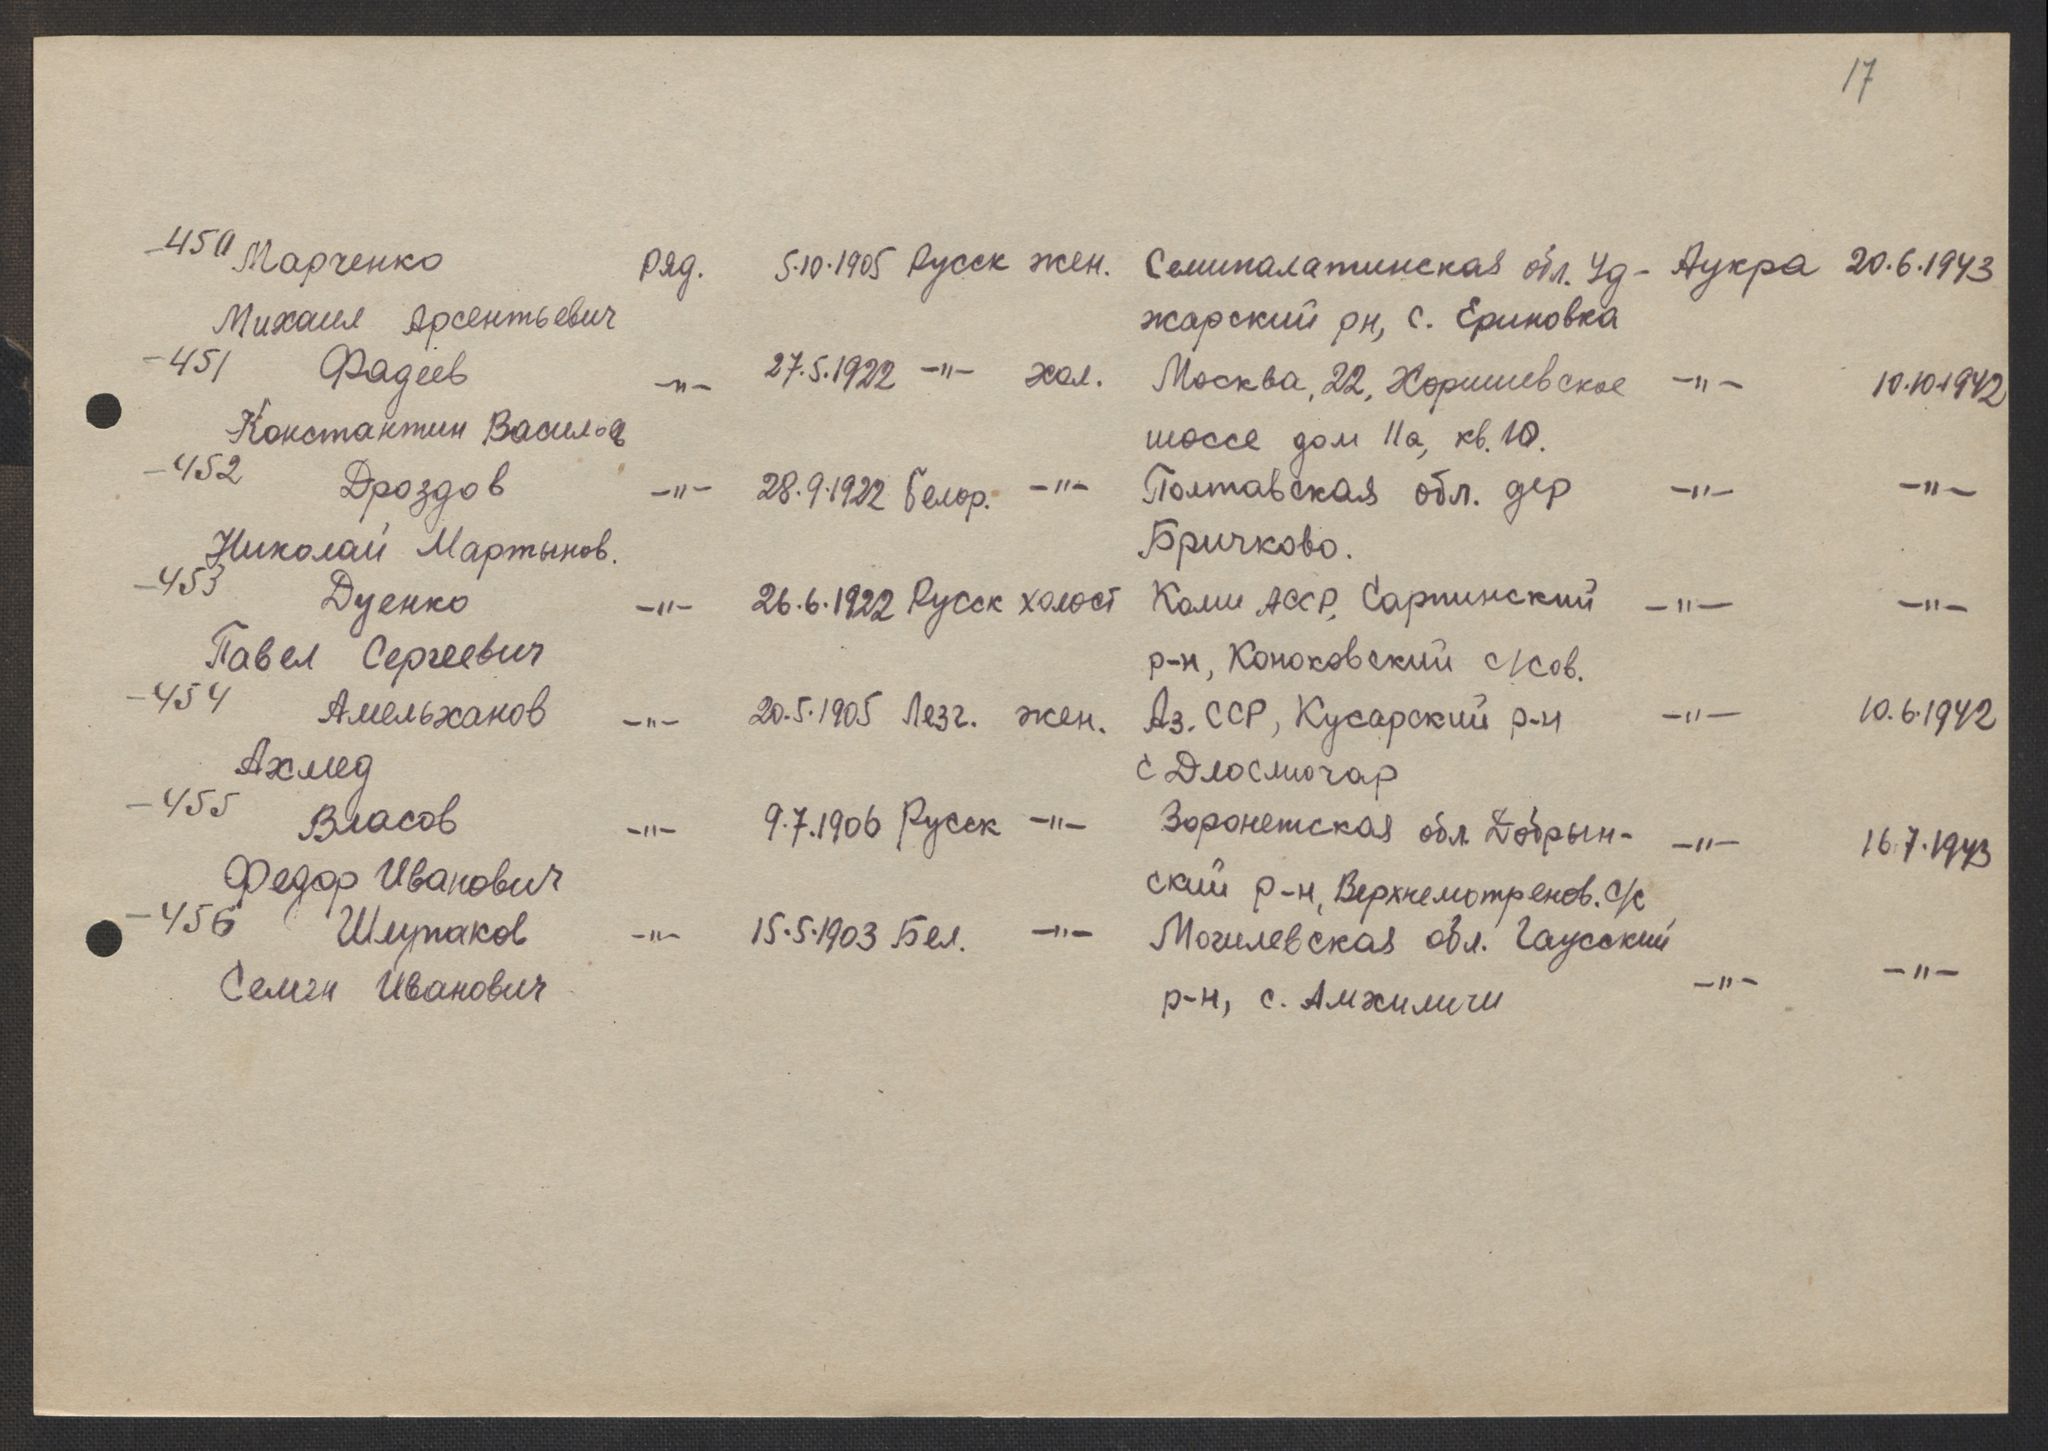 17
-450 Марченко Ряд. 5.10.1905 Русск жен. Семипалатинская обл. Уд- Аукра 20.6.1943
Михаил Арсентьевич жарский рн, с. Ериновка
-451 Фадеев -"- 27.5.1922 -"- хол. Москва, 22, Хоришевское -"- 10.10.1942
Константин Василь шоссе дом 11а, кв. 10.
-452 Дроздов -"- 28.9.1922 Белор. -"- Полтавская обл. дер -"- -"-
Николай Мартынов. Бричково.
-453 Дуенко -"- 26.6.1922 Русск холост Коми АССР, Сарпинский -"- -"-
Павел Сергеевич р-н, Коноковский с/сов.
-454 Амельханов -"- 20.5.1905 Лезг. жен. Аз. ССР, Кусарский р-н -"- 10.6.1942
Ахмед с
-455 Власов -"- 9.7.1906 Русск -"- Воронетская обл Добрын- -"- 16.7.1943
Федор Иванович ский р-н, Верхнемотренов. с/с
-456 Шлупаков -"- 15.5.1903 Бел. -"- Могилевская обл. Чаусский
Семен Иванович р-н, с. Амхиничи -"- -"-